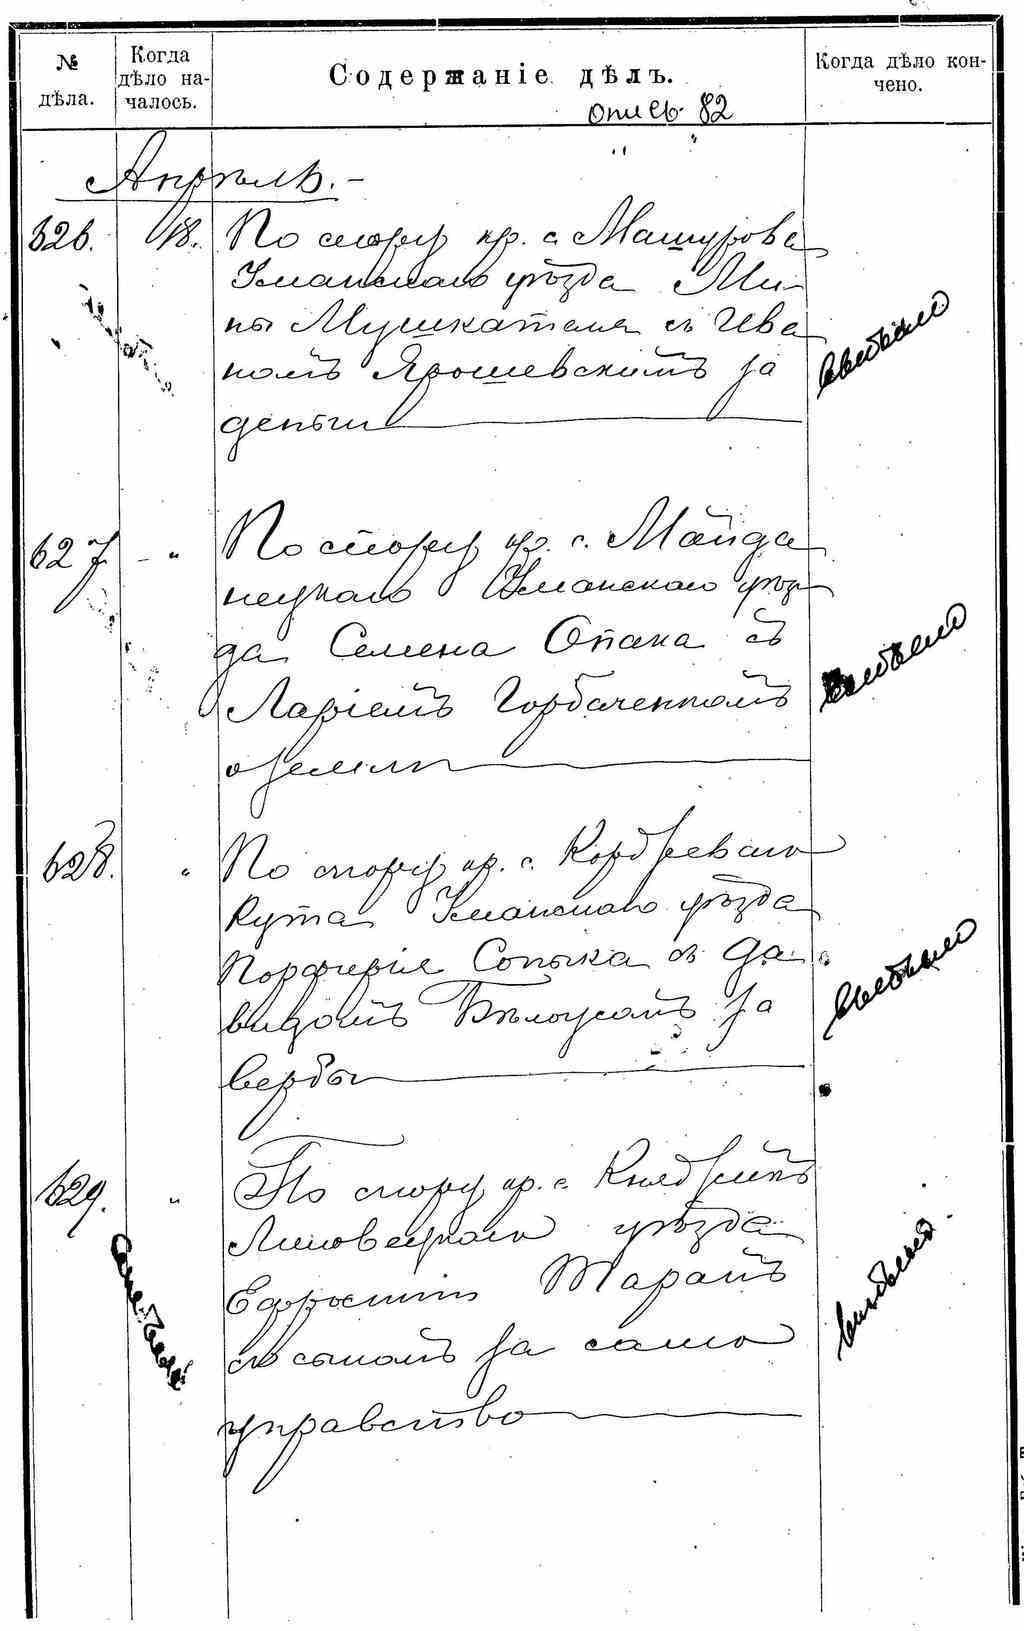 № дѣла.
Когда дѣло на-
чалось.
Содержаніе дѣлъ.
Когда дѣло кон-
чено.
опись 82
Апрѣль.-
626. 18. По спору кр. с. Машурова
Уманскаго уѣзда Ми-
ны Мушкателя съ Ива
номъ Ярошевскимъ за
деньги
627 - " По спору кр. с. Майда
нецкаго Уманскаго уѣз
да Семена Опака съ
Ларіемъ Горбаченкомъ
о землѣ
628. " По спору кр. с. Кордзеваго
Кута Уманскаго уѣзда
Порфирія Сопыка съ Да
видомъ Бѣлоусомъ за
вербы
629. " По спору кр. с.
Липовецкаго уѣзда
Ефросиніи Таранъ
съ сыномъ за само
управство